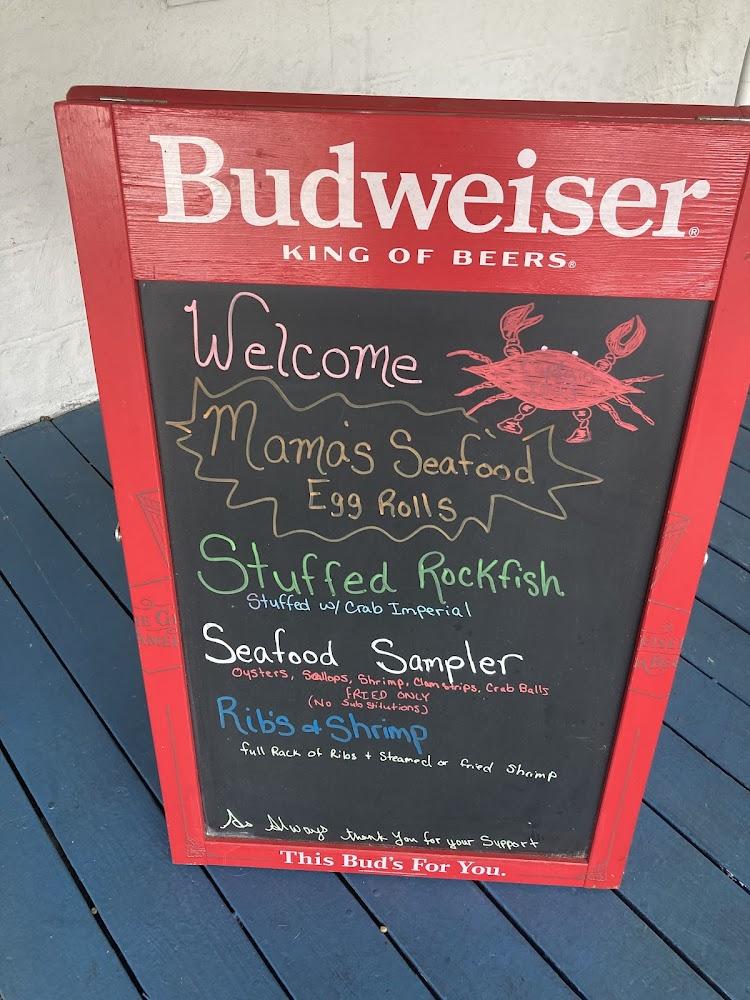 Budweiser®
KING OF BEERS®
Welcome
Mama's Seafood
Egg Rolls
Stuffed Rockfish
Stuffed w/ Crab Imperial
Seafood Sampler
Oysters, Scallops, Shrimp, Clam strips, Crab Balls
FRIED ONLY
(No Substitutions)
Ribs & Shrimp
full Rack of Ribs + Steamed or fried Shrimp
As Always thank You for your Support
This Bud's For You.